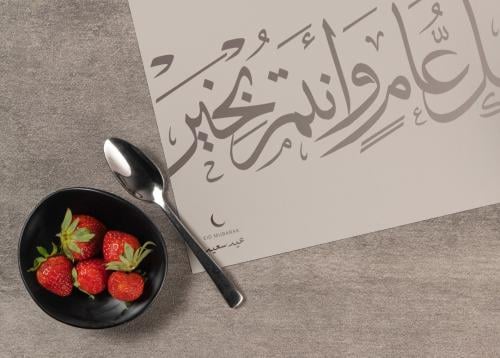 كل عام وأنتم بخير
EID MUBARAK
عيد سعيد